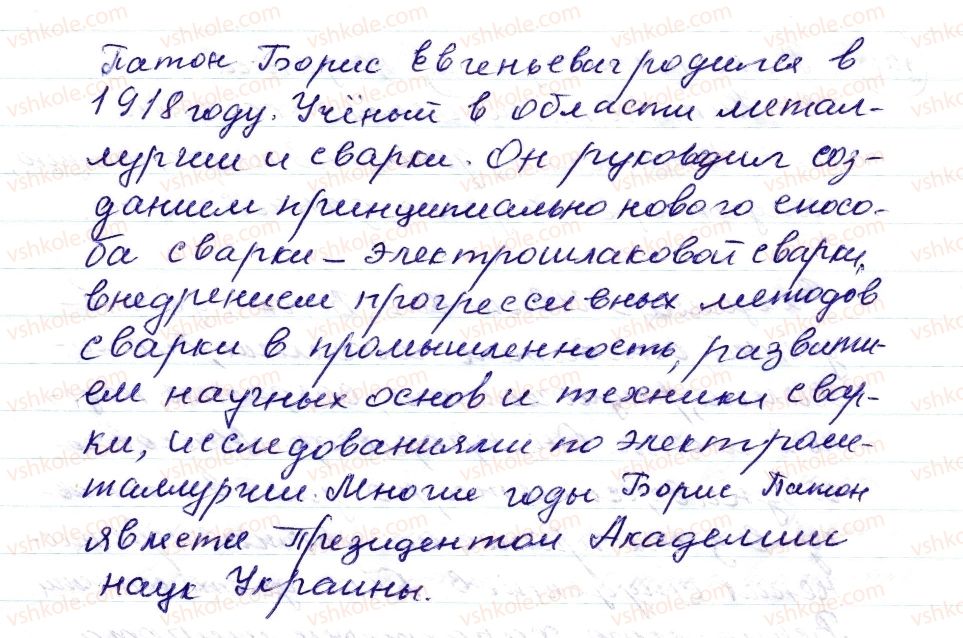 Патон Борис Евгеньевич родился в
1918 году. Учёный в области метал-
лургии и сварки. Он руководил соз-
данием принципиально нового спосо-
ба сварки – электрошлаковой сварки,
внедрением прогрессивных методов
сварки в промышленность, развити-
ем научных основ и техники свар-
ки, исследованиями по электроме-
таллургии. Многие годы Борис Патон
является Президентом Академии
наук Украины.